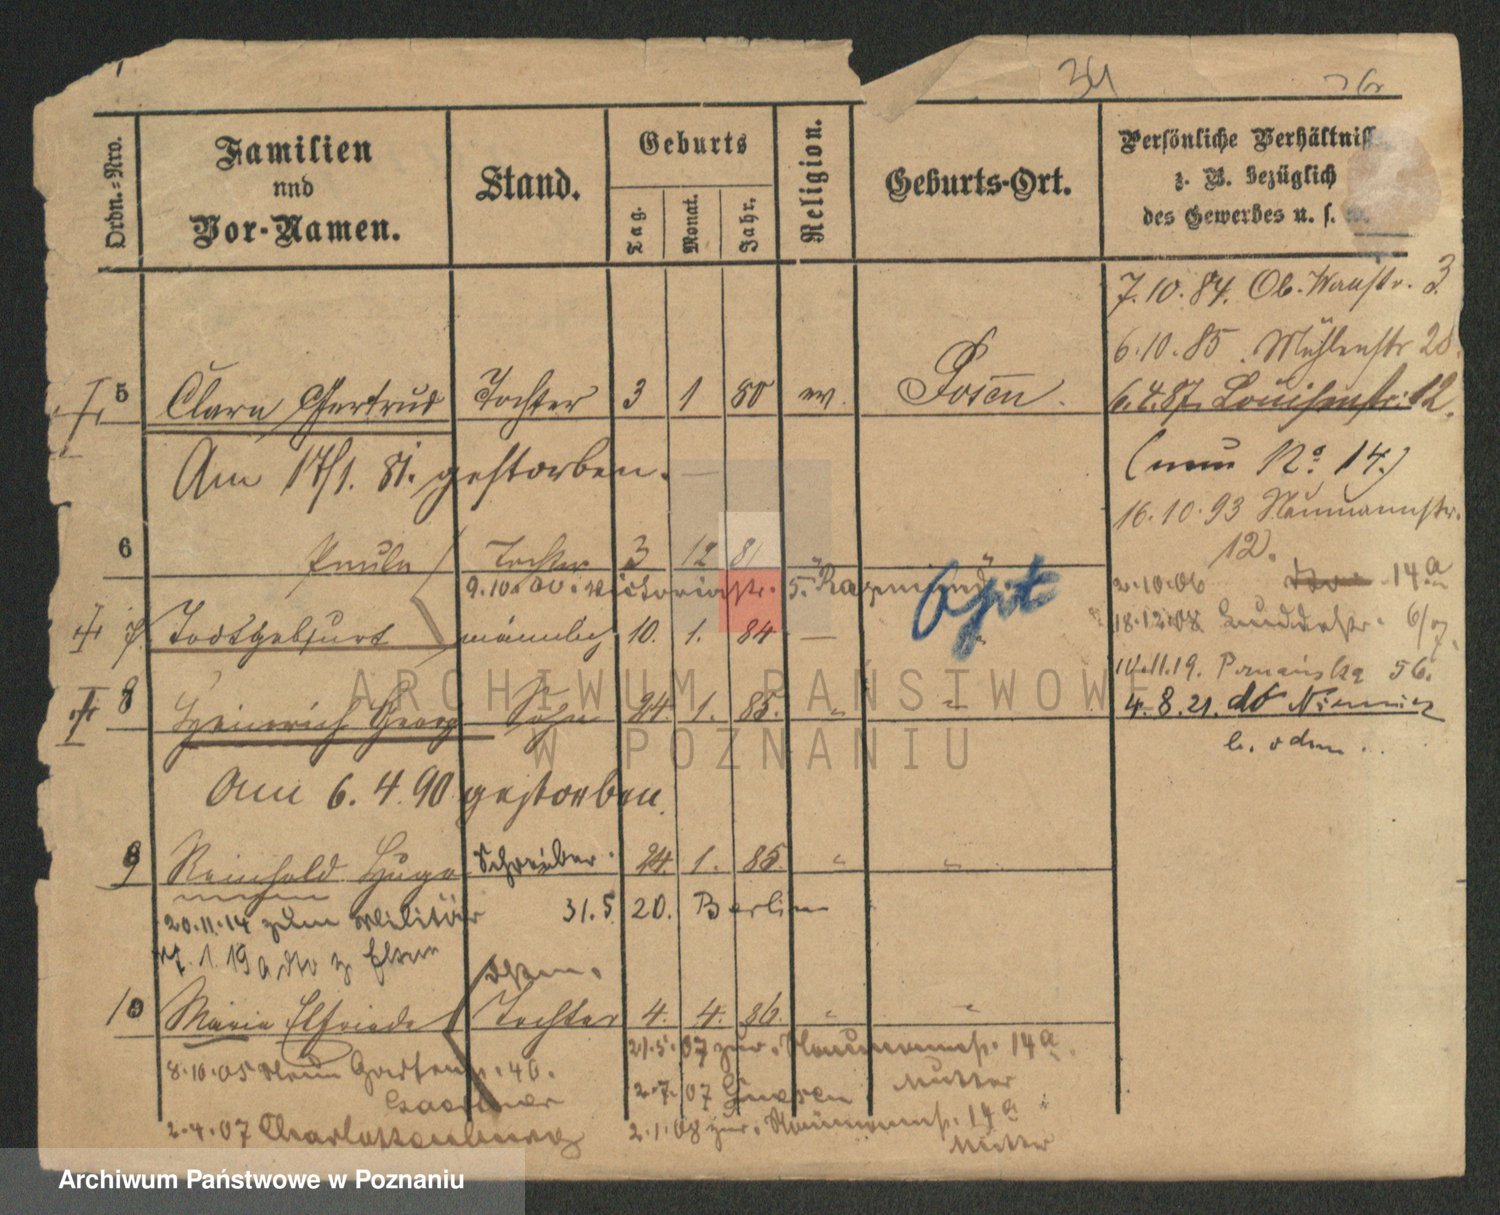 34
Ordn.=Nro.
Familien
nnd
Vor-Namen.
Stand.
Geburts
Tag.
Monat.
Jahr.
Religion.
Geburts-Ort.
Persönliche Verhältniss
z. B. bezüglich
des Gewerbes u. s. w.
7.10.84. Ob. Wallstr. 3.
6.10.85. Mühlenstr 28.
5 Clara Gertrud Tochter 3 1 80 ev. Posen.
6.4.87. Louisenstr. 12.
Am 17/1. 81. gestorben.
(neu No. 14.)
16.10.93 Naumannstr.
12.
6 Paula Tochter 3 12 81
9.10.00. Victoriastr. 5.
2.10.06 14a
7 Todtgeburt männlich 10. 1. 84 —
18.12.08
11.11.19. Poznańska 56.
8 Heinrich Georg Sohn 24. 1. 85. " "
4.8.21. do Niemiec
Am 6.4.90 gestorben.
9 Reinhold Hugo Schreiber. 24. 1. 85. " "
20.11.14 zum Militär 31.5.20. Berlin
1.19
10 Maria Elfriede Tochter 4. 4. 86. " "
21.5.07 zur. Naumannst. 14a.
8.10.05 Neue Gartenst. 46.
2.7.07 Gnesen Mutter
2.4.07 Charlottenburg
2.1.08 zur. Naumannst. 14a
Mutter
ARCHIWUM PAŃSTWOWE
W POZNANIU
Archiwum Państwowe w Poznaniu